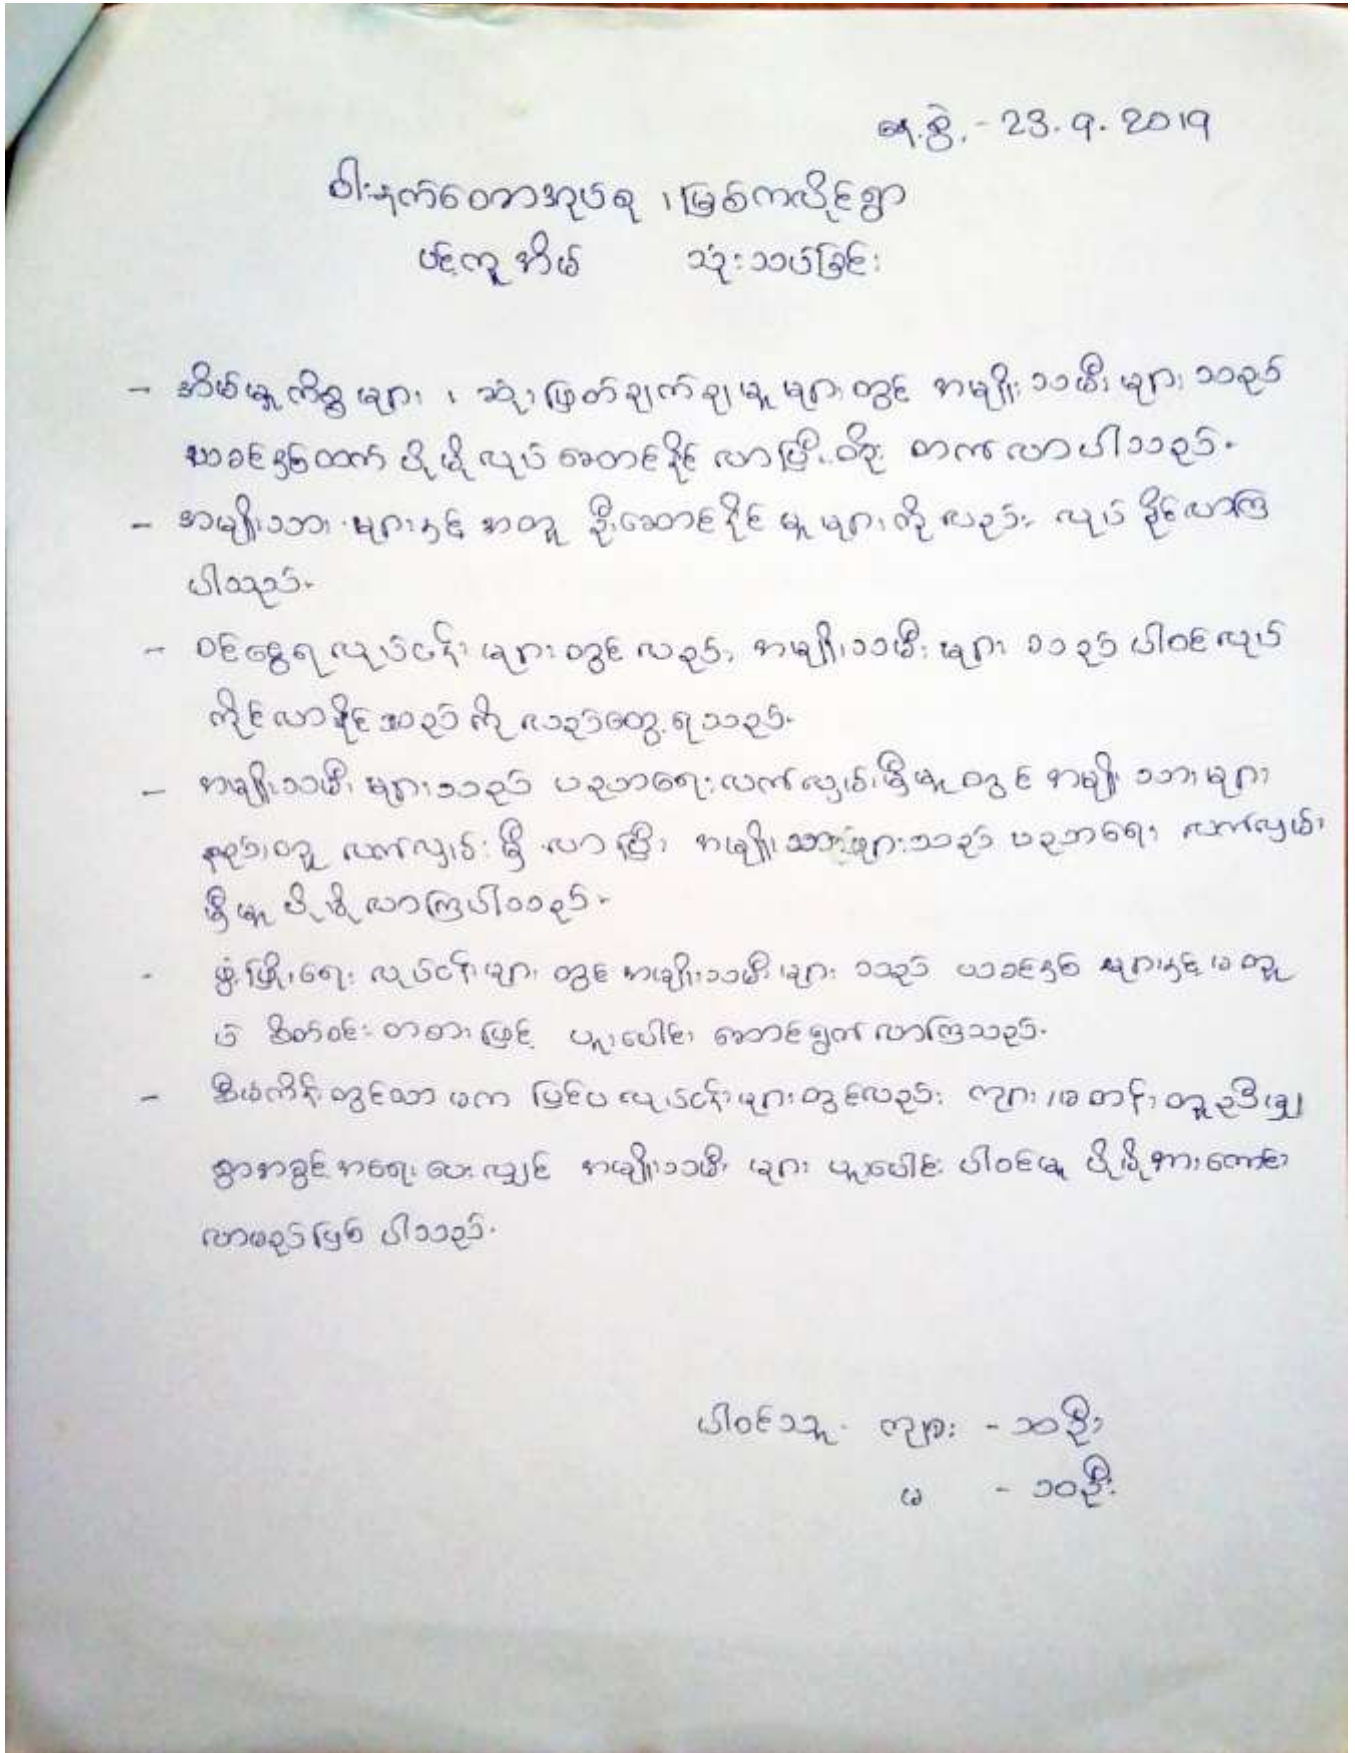 နေ့.စွဲ. - 23.9.2019
ဝါးနက်ချောင်းအုပ်စု ၊ မြစ်ကလိုင်ရွာ
ပင့်ကူအိမ် သုံးသပ်ခြင်း
- အိမ်မှုကိစ္စများ ၊ ဆုံးဖြတ်ချက်ချမှုများတွင် အမျိုးသမီးများသည်
ယခင်နှစ်ထက် ပိုမိုလုပ်ဆောင်နိုင်လာပြီး တက်လာပါသည်။
- အမျိုးသားများနှင့်အတူ ဦးဆောင်နိုင်မှုများကိုလည်း လုပ်နိုင်လာကြ
ပါသည်။
- ဝင်ငွေရလုပ်ငန်းများတွင်လည်း အမျိုးသမီးများသည် ပါဝင်လုပ်
ကိုင်လာနိုင်သည်ကို လည်တွေ့ရသည်။
- အမျိုးသမီးများသည် ပညာရေးလက်လှမ်းမှီမှုတွင် အမျိုးသားများ
နည်းတူ လက်လှမ်းမှီလာပြီး အမျိုးသားများသည် ပညာရေး လက်လှမ်း
မှီမှု ပိုမိုလာကြပါသည်။
- ဖွံ့ဖြိုးရေး လုပ်ငန်းများတွင် အမျိုးသမီးများသည် ယခင်နှစ်များနှင့်မတူ
ပဲ စိတ်ဝင်းတစားဖြင့် ပူးပေါင်းဆောင်ရွက်လာကြသည်။
- စီမံကိန်းတွင်သာမက ပြင်ပလုပ်ငန်းများတွင်လည်း ကျား/မတန်းတူညီမျှ
စွာအခွင့်အရေးပေးလျှင် အမျိုးသမီးများ ပူးပေါင်းပါဝင်မှု ပိုမိုအားကောင်း
လာမည်ဖြစ်ပါသည်။
ပါဝင်သူ - ကျား - ဦး
မ - ၁၀ဦး